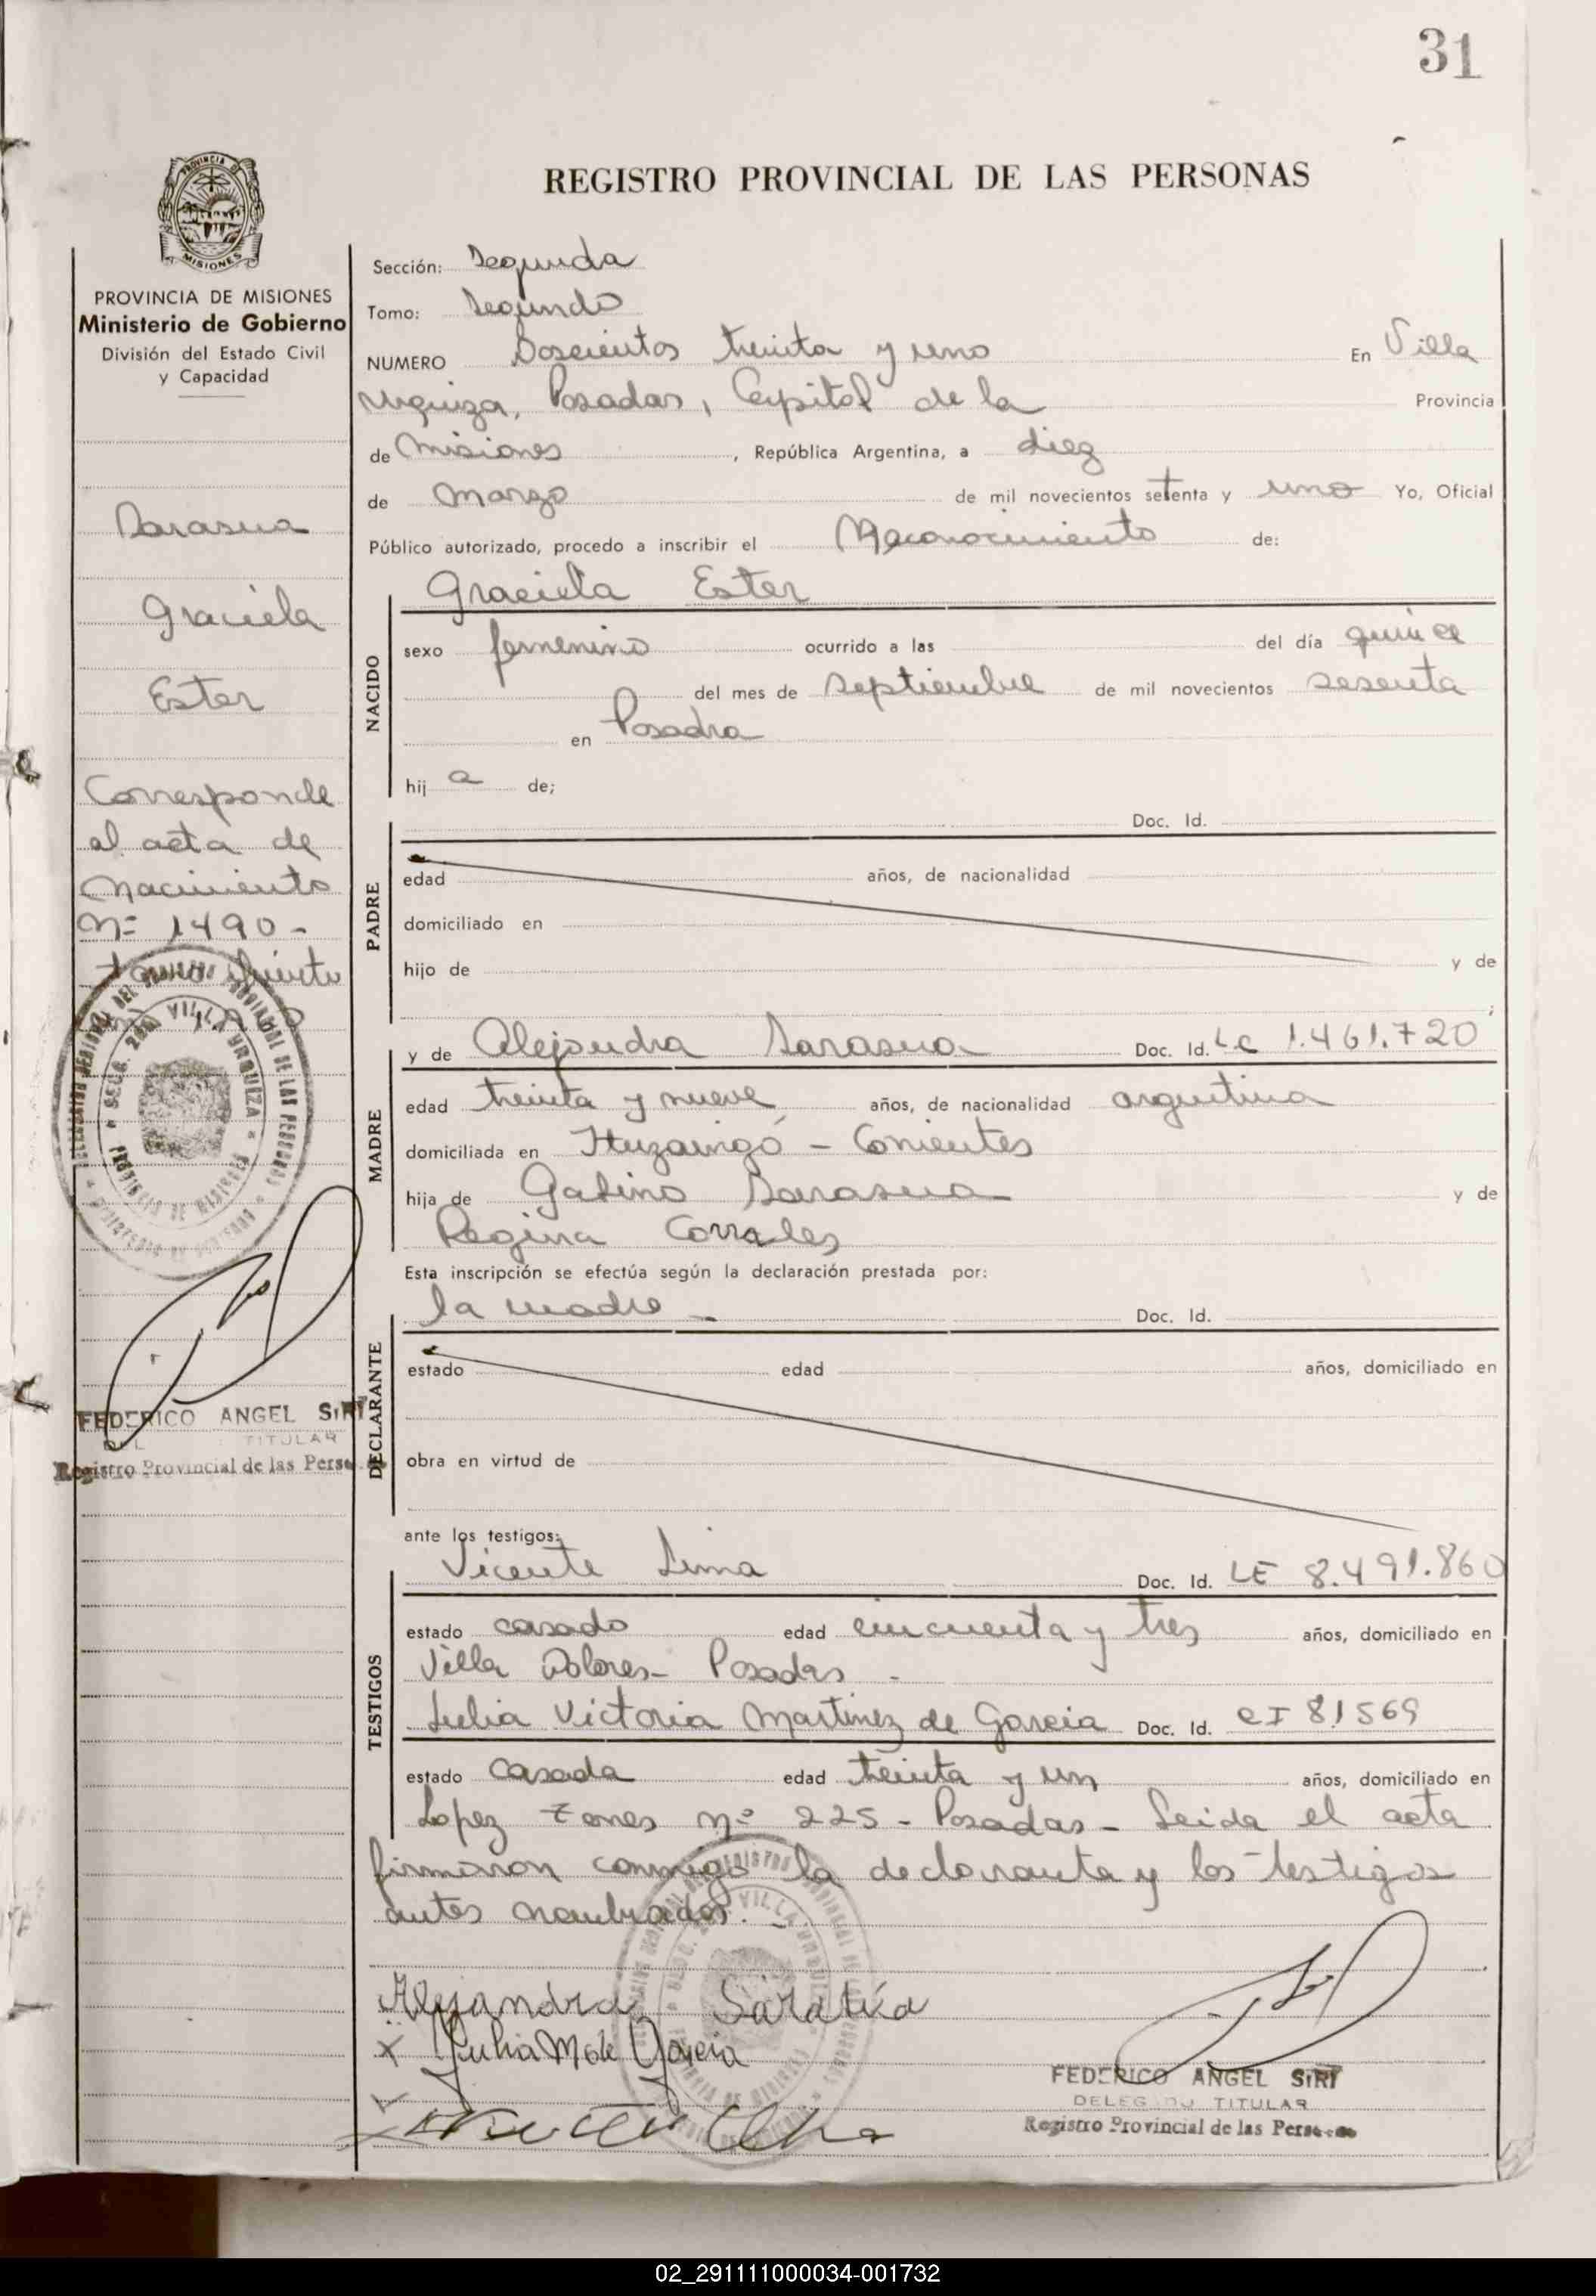 31
REGISTRO PROVINCIAL DE LAS PERSONAS
PROVINCIA DE MISIONES
Ministerio de Gobierno
División del Estado Civil
y Capacidad
Sarasua
Graciela
Ester
Corresponde
al acta de
Nacimiento
Nº 1490-
tomo Quinto
FEDERICO ANGEL SIRI
DEL TITULAR
Registro Provincial de las Perso
Sección: Segunda
Tomo: Segundo
NUMERO Doscientos treinta y uno En Villa
Urquiza, Posadas, Capital de la Provincia
de Misiones, República Argentina, a diez
de Marzo de mil novecientos setenta y uno Yo, Oficial
Público autorizado, procedo a inscribir el Reconocimiento de:
Graciela Ester
NACIDO
sexo femenino ocurrido a las del día quince
del mes de septiembre de mil novecientos sesenta
en Posadas
hij a de;
Doc. Id.
PADRE
edad años, de nacionalidad
domiciliado en
hijo de y de
;
y de Alejandra Sarasua Doc. Id. LC 1.461.720
MADRE
edad treinta y nueve años, de nacionalidad argentina
domiciliada en Ituzaingó - Corrientes
hija de Gabino Sarasua y de
Regina Corrales
Esta inscripción se efectúa según la declaración prestada por:
la madre - Doc. Id.
DECLARANTE
estado edad años, domiciliado en
obra en virtud de
ante los testigos:
Vicente Lima Doc. Id. LE 8.491.860
TESTIGOS
estado casado edad cincuenta y tres años, domiciliado en
Villa Dolores- Posadas -
Julia Victoria Martinez de Garcia Doc. Id. CI 81569
estado casada edad treinta y un años, domiciliado en
Lopez Torres nº 225 - Posadas - Leida el acta
firmaron conmigo la declaranta y los testigos
antes nombrados. -
Alejandra Sarasúa
x Julia M de Garcia
FEDERICO ANGEL SIRI
DELEGADO TITULAR
Registro Provincial de las Personas
02_291111000034-001732